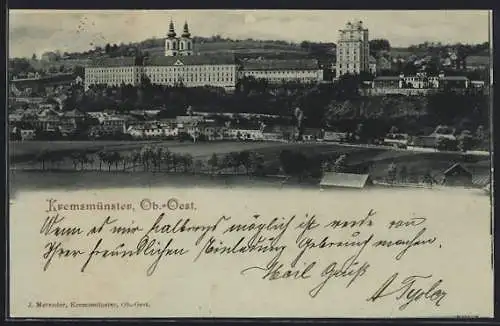 Kremsmünster, Ob.-Oest.
Wenn es mir halbwegs möglich ist werde von
Ihrer freundlichen Einladung Gebrauch machen.
Heil Gruß
J. Marender, Kremsmünster, Ob.-Oest.